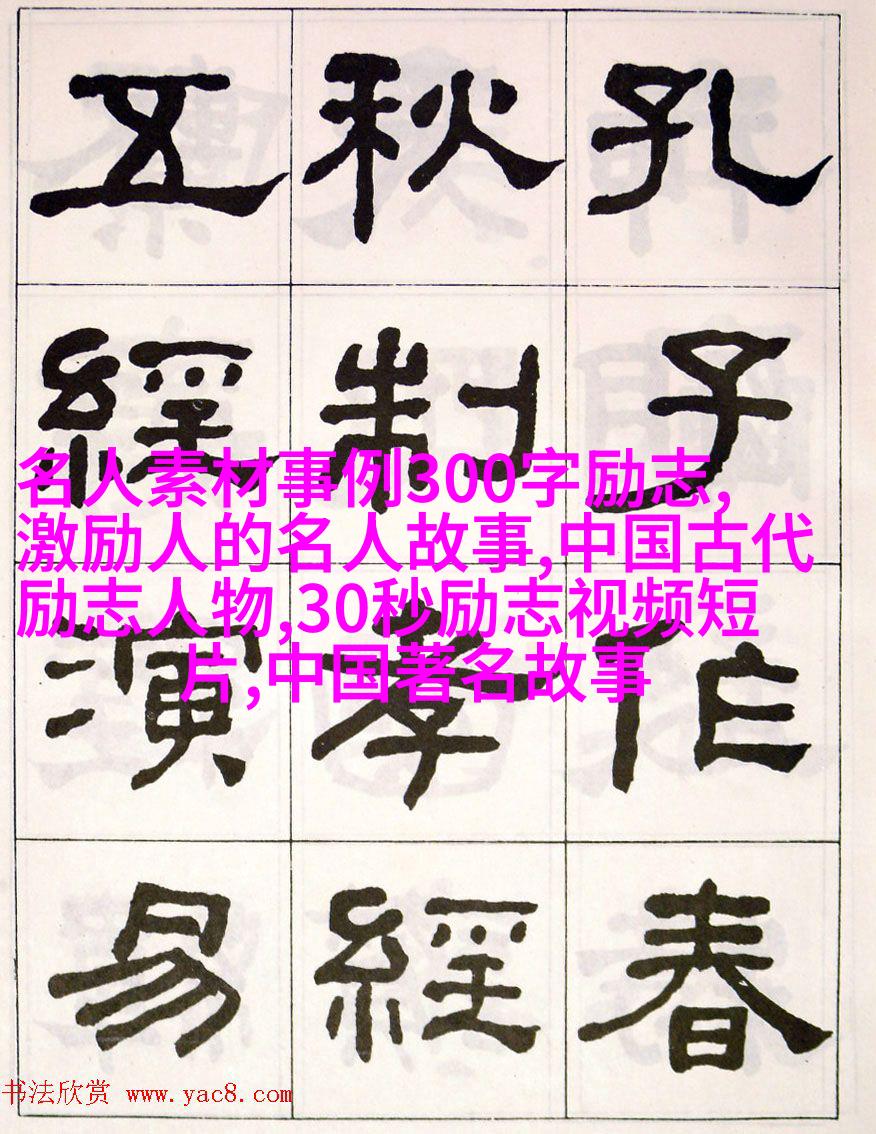 孔子作春
秋制孝經
五經演易
名人素材事例300字励志,
激励人的名人故事,中国古代
励志人物,30秒励志视频短
片,中国著名故事
书法欣赏 www.yac8.com